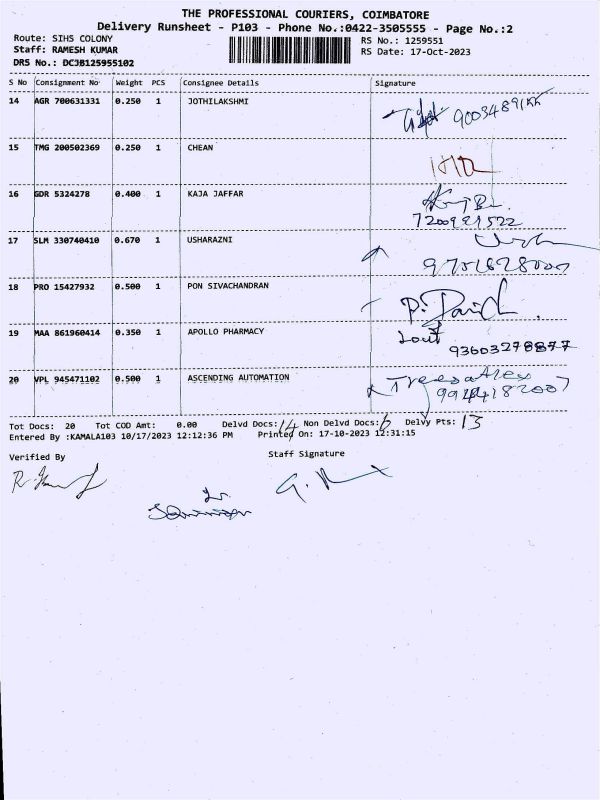 THE PROFESSIONAL COURIERS, COIMBATORE
Delivery Runsheet - P103 - Phone No.:0422-3505555 - Page No.:2
Route: SIHS COLONY RS No.: 1259551
Staff: RAMESH KUMAR RS Date: 17-Oct-2023
DRS No.: DCJB125955102
S No Consignment No Weight PCS Consignee Details Signature
14 AGR 700631331 0.250 1 JOTHILAKSHMI
15 TMG 200502369 0.250 1 CHEAN
16 GDR 5324278 0.400 1 KAJA JAFFAR
17 SLM 330740410 0.670 1 USHARAZNI
18 PRO 15427932 0.500 1 PON SIVACHANDRAN
19 MAA 861960414 0.350 1 APOLLO PHARMACY
20 VPL 945471102 0.500 1 ASCENDING AUTOMATION
Tot Docs: 20 Tot COD Amt: 0.00 Delvd Docs: 14 Non Delvd Docs: 6 Delvy Pts: 13
Entered By :KAMALA103 10/17/2023 12:12:36 PM Printed On: 17-10-2023 12:31:15
Verified By Staff Signature